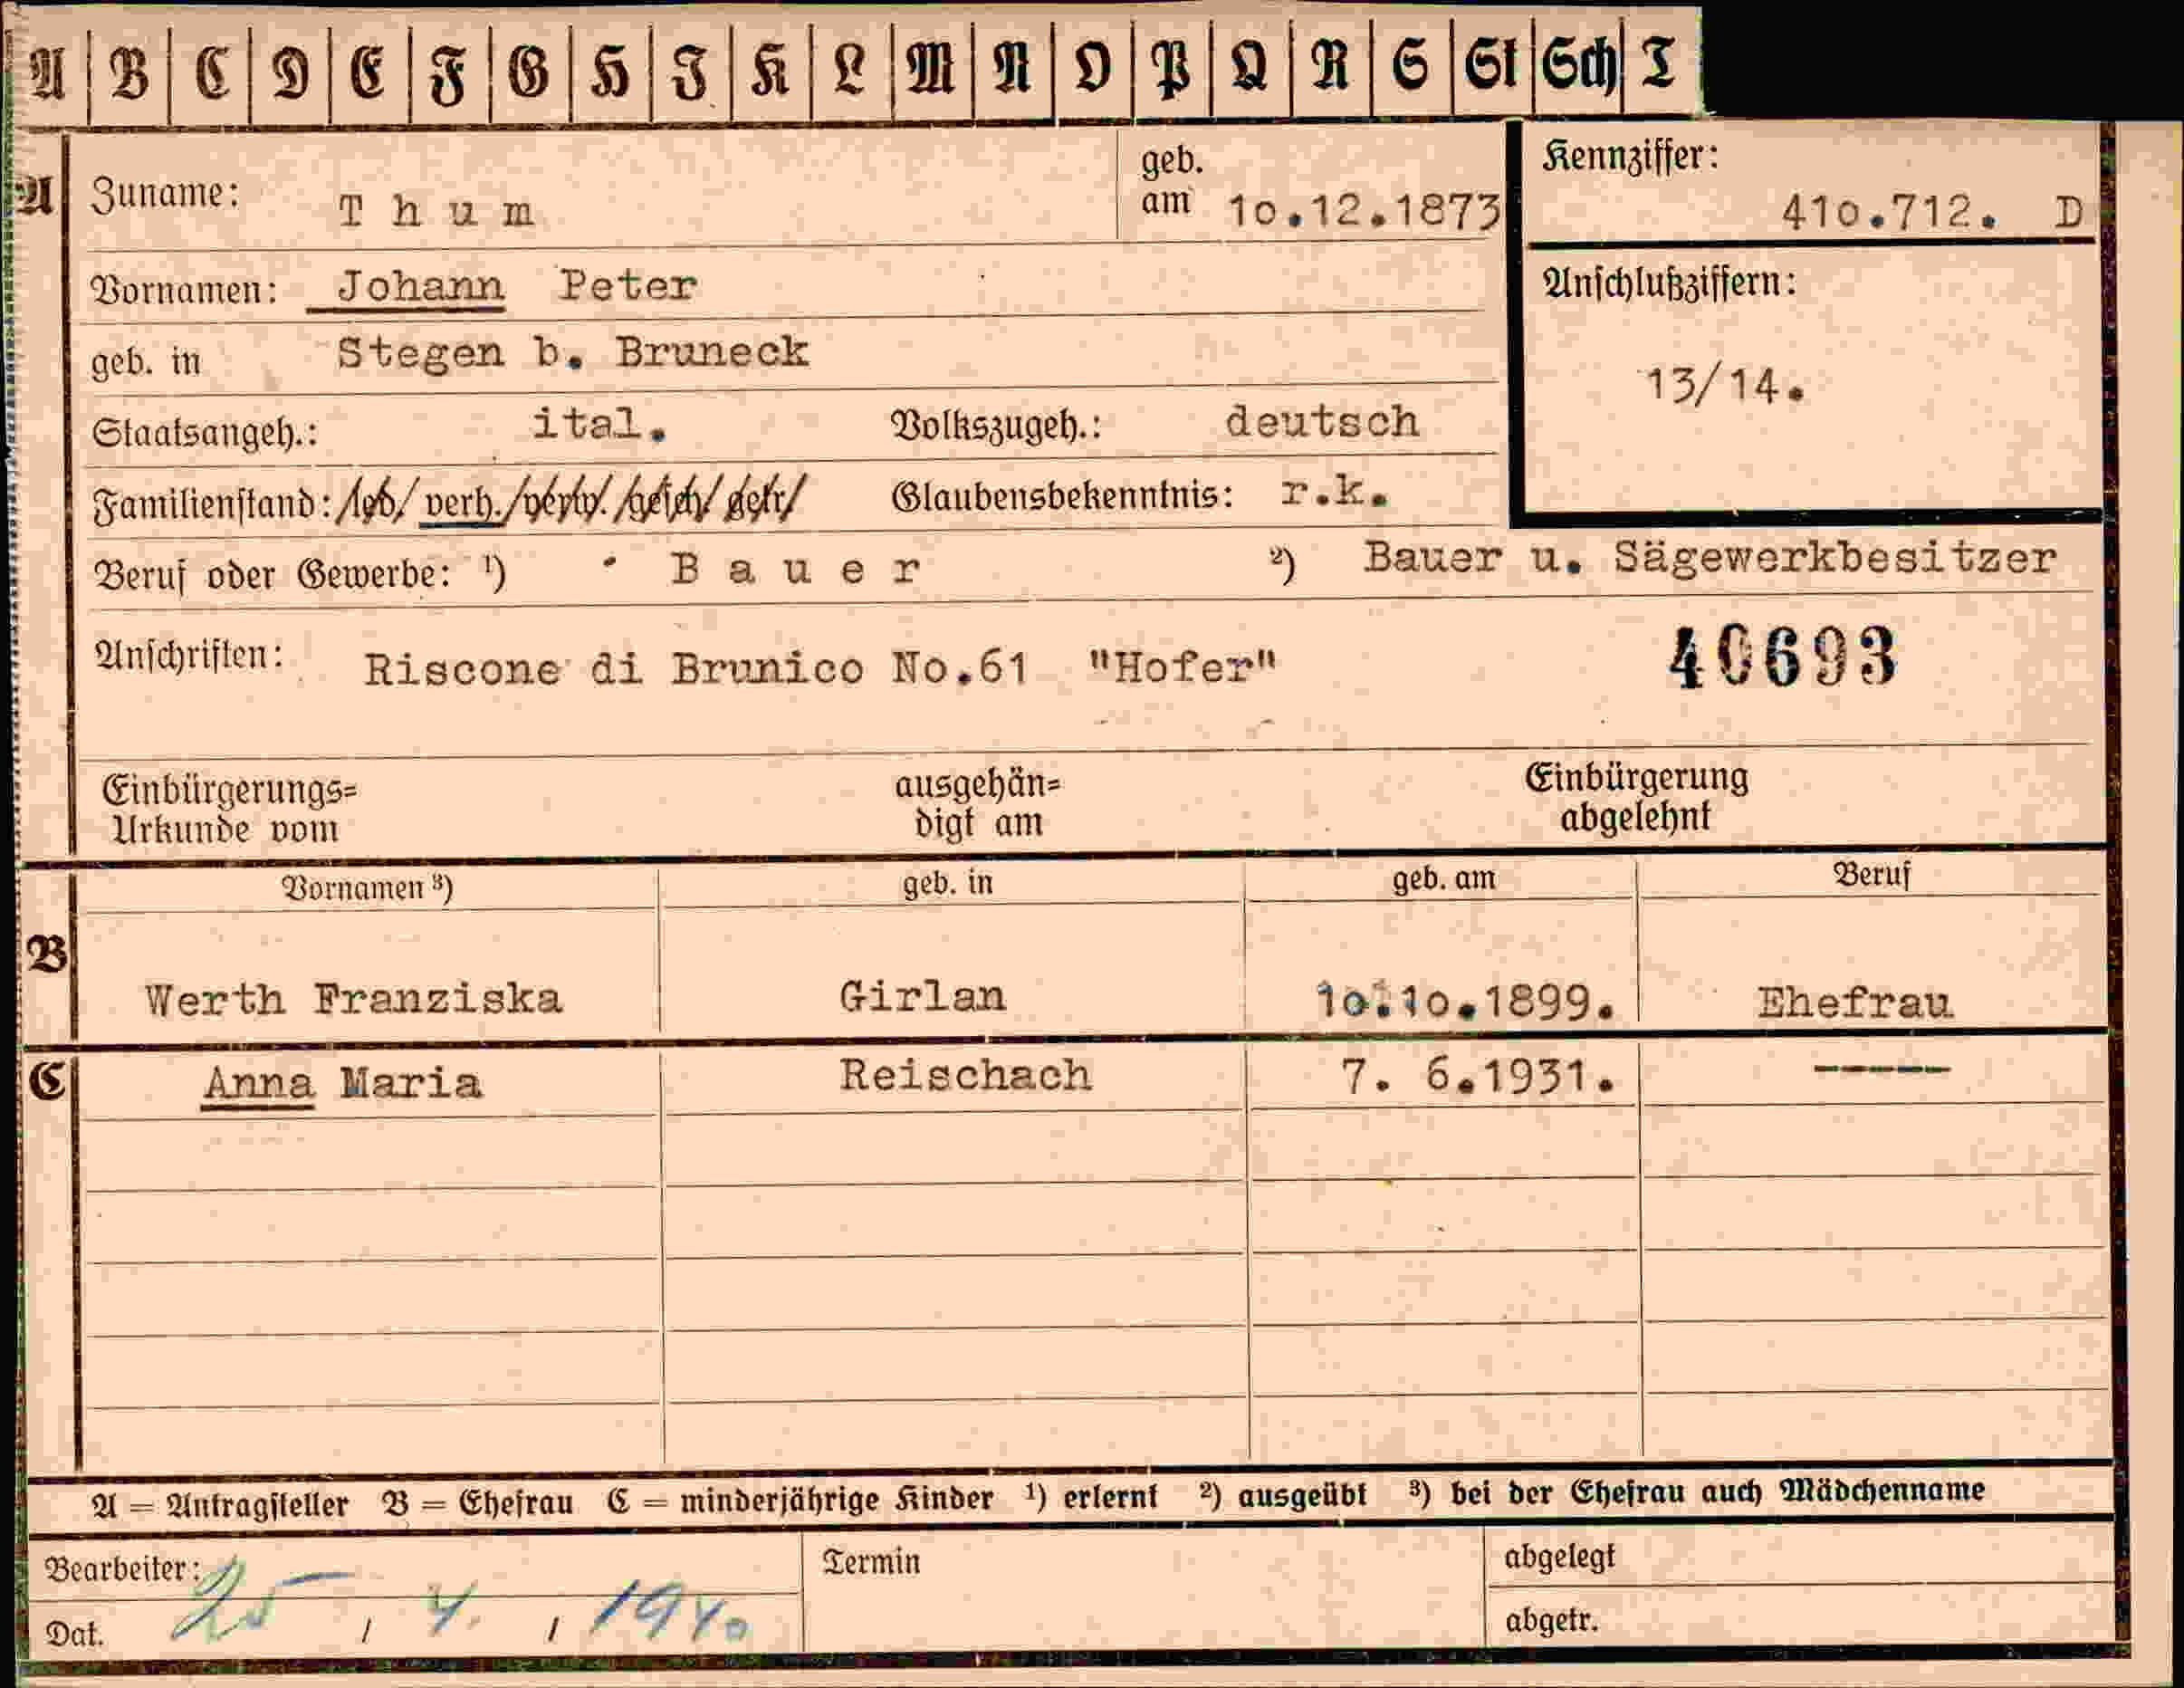 A B C D E F G H J K L M N O P Q R S St Sch T
A Zuname: Thum geb. am 10.12.1873 Kennziffer: 410.712. D
Vornamen: Johann Peter Anschlußziffern:
geb. in Stegen b. Bruneck 13/14.
Staatsangeh.: ital. Volkszugeh.: deutsch
Familienstand: /led/ verh./verw./gesch/ getr/ Glaubensbekenntnis: r.k.
Beruf oder Gewerbe: ¹) Bauer ²) Bauer u. Sägewerkbesitzer
Anschriften: Riscone di Brunico No.61 "Hofer" 40693
Einbürgerungs= ausgehän= Einbürgerung
Urkunde vom digt am abgelehnt
Vornamen ³) geb. in geb. am Beruf
B Werth Franziska Girlan 10.10.1899. Ehefrau
C Anna Maria Reischach 7. 6.1931. -----
A = Antragsteller B = Ehefrau C = minderjährige Kinder ¹) erlernt ²) ausgeübt ³) bei der Ehefrau auch Mädchenname
Bearbeiter: Termin abgelegt
Dat. 25 / 4. / 1940 abgetr.